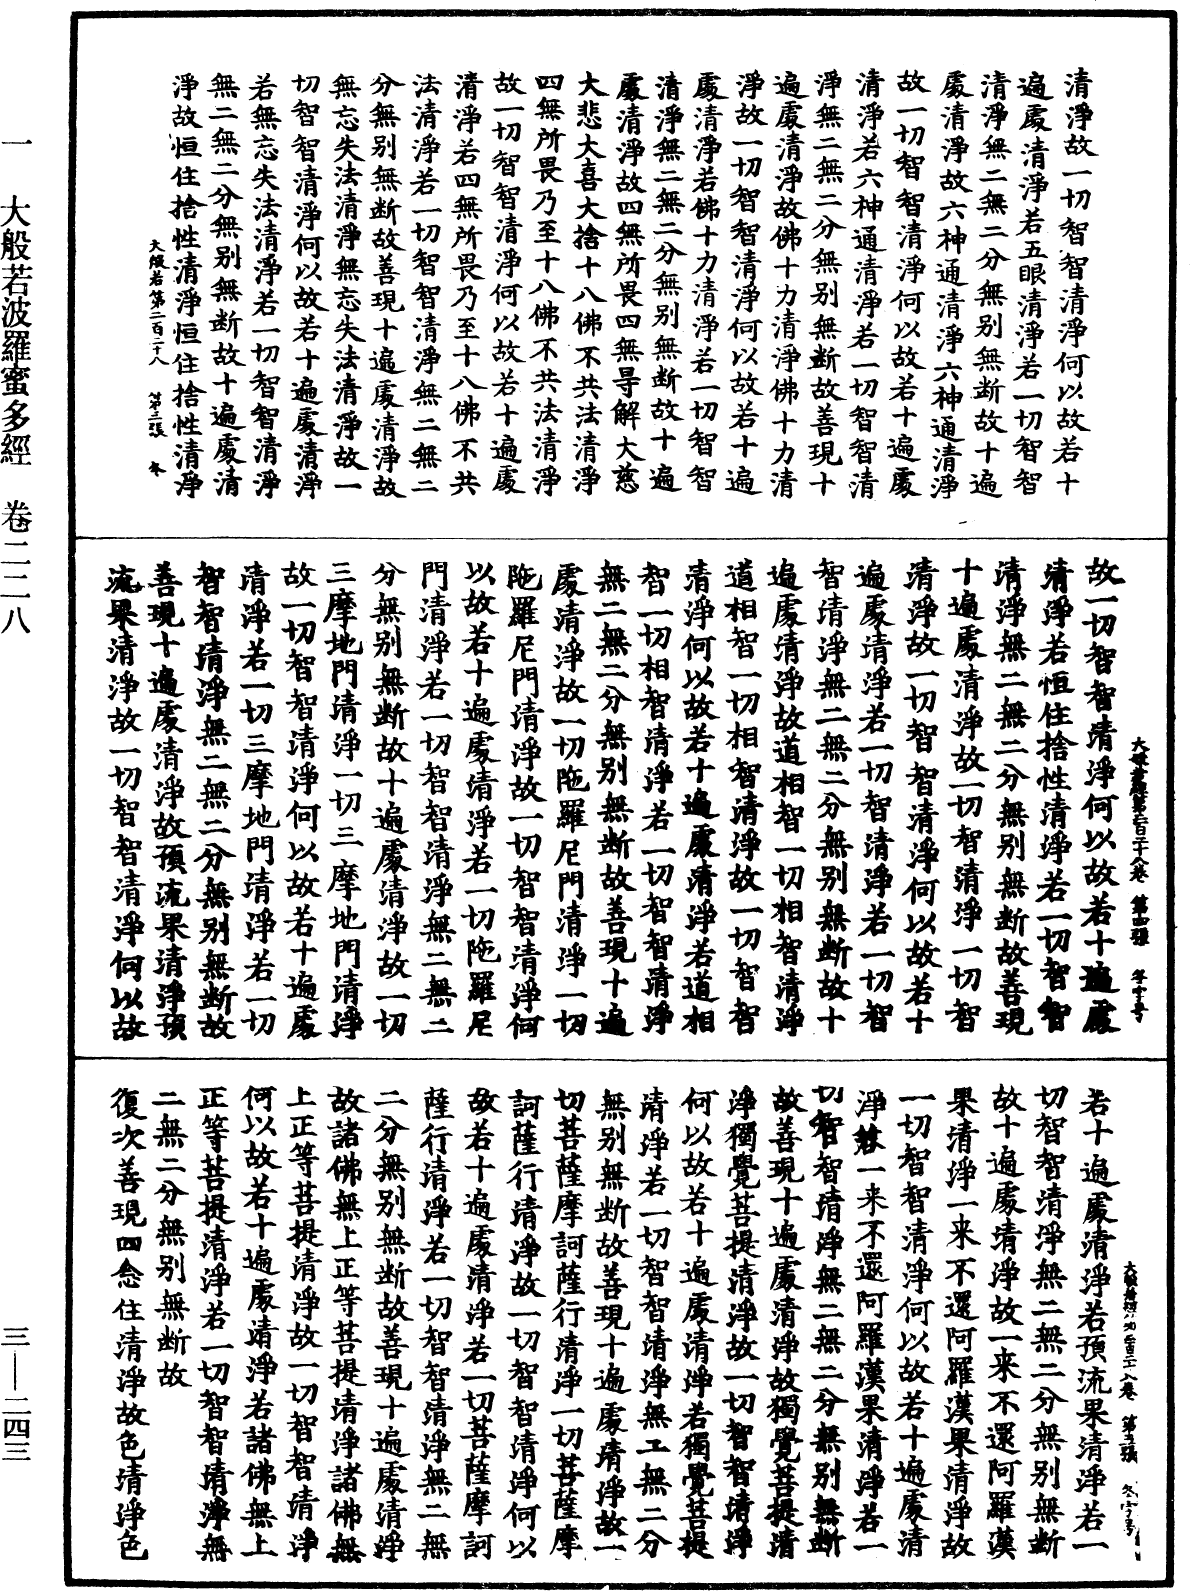 清淨故一切智智清淨何以故若十
遍處清淨若五眼清淨若一切智智
清淨無二無二分無別無斷故十遍
處清淨故六神通清淨六神通清淨
故一切智智清淨何以故若十遍處
清淨若六神通清淨若一切智智清
淨無二無二分無別無斷故善現十
遍處清淨故佛十力清淨佛十力清
淨故一切智智清淨何以故若十遍
處清淨若佛十力清淨若一切智智
清淨無二無二分無別無斷故十遍
處清淨故四無所畏四無导解大慈
大悲大喜大捨十八佛不共法清淨
四無所畏乃至十八佛不共法清淨
故一切智智清淨何以故若十遍處
清淨若四無所畏乃至十八佛不共
法清淨若一切智智清淨無二無二
分無別無斷故善現十遍處清淨故
無忘失法清淨無忘失法清淨故一
切智智清淨何以故若十遍處清淨
若無忘失法清淨若一切智智清淨
無二無二分無別無斷故十遍處清
淨故恒住捨性清淨恒住捨性清淨
大般若第二百二十八 第三張 冬
大般若經第二百二十八卷 第四張 冬字号
故一切智智清淨何以故若十遍處
清淨若恒住捨性清淨若一切智智
清淨無二無二分無別無斷故善現
十遍處清淨故一切智清淨一切智
清淨故一切智智清淨何以故若十
遍處清淨若一切智清淨若一切智
智清淨無二無二分無別無斷故十
遍處清淨故道相智一切相智清淨
道相智一切相智清淨故一切智智
清淨何以故若十遍處清淨若道相
智一切相智清淨若一切智智清淨
無二無二分無別無斷故善現十遍
處清淨故一切陁羅尼門清淨一切
陁羅尼門清淨故一切智智清淨何
以故若十遍處清淨若一切陁羅尼
門清淨若一切智智清淨無二無二
分無別無斷故十遍處清淨故一切
三摩地門清淨一切三摩地門清淨
故一切智智清淨何以故若十遍處
清淨若一切三摩地門清淨若一切
智智清淨無二無二分無別無斷故
善現十遍處清淨故預流果清淨預
流果清淨故一切智智清淨何以故
大般若經第二百二十八卷 第五張 冬字号
若十遍處清淨若預流果清淨若一
切智智清淨無二無二分無別無斷
故十遍處清淨故一来不還阿羅漢
果清淨一来不還阿羅漢果清淨故
一切智智清淨何以故若十遍處清
淨若一来不還阿羅漢果清淨若一
切智智清淨無二無二分無別無斷
故善現十遍處清淨故獨覺菩提清
淨獨覺菩提清淨故一切智智清淨
何以故若十遍處清淨若獨覺菩提
清淨若一切智智清淨無二無二分
無別無斷故善現十遍處清淨故一
切菩薩摩訶薩行清淨一切菩薩摩
訶薩行清淨故一切智智清淨何以
故若十遍處清淨若一切菩薩摩訶
薩行清淨若一切智智清淨無二無
二分無別無斷故善現十遍處清淨
故諸佛無上正等菩提清淨諸佛無
上正等菩提清淨故一切智智清淨
何以故若十遍處清淨若諸佛無上
正等菩提清淨若一切智智清淨無
二無二分無別無斷故
復次善現四念住清淨故色清淨色
一 大般若波羅蜜多經 卷二二八 三—二四三